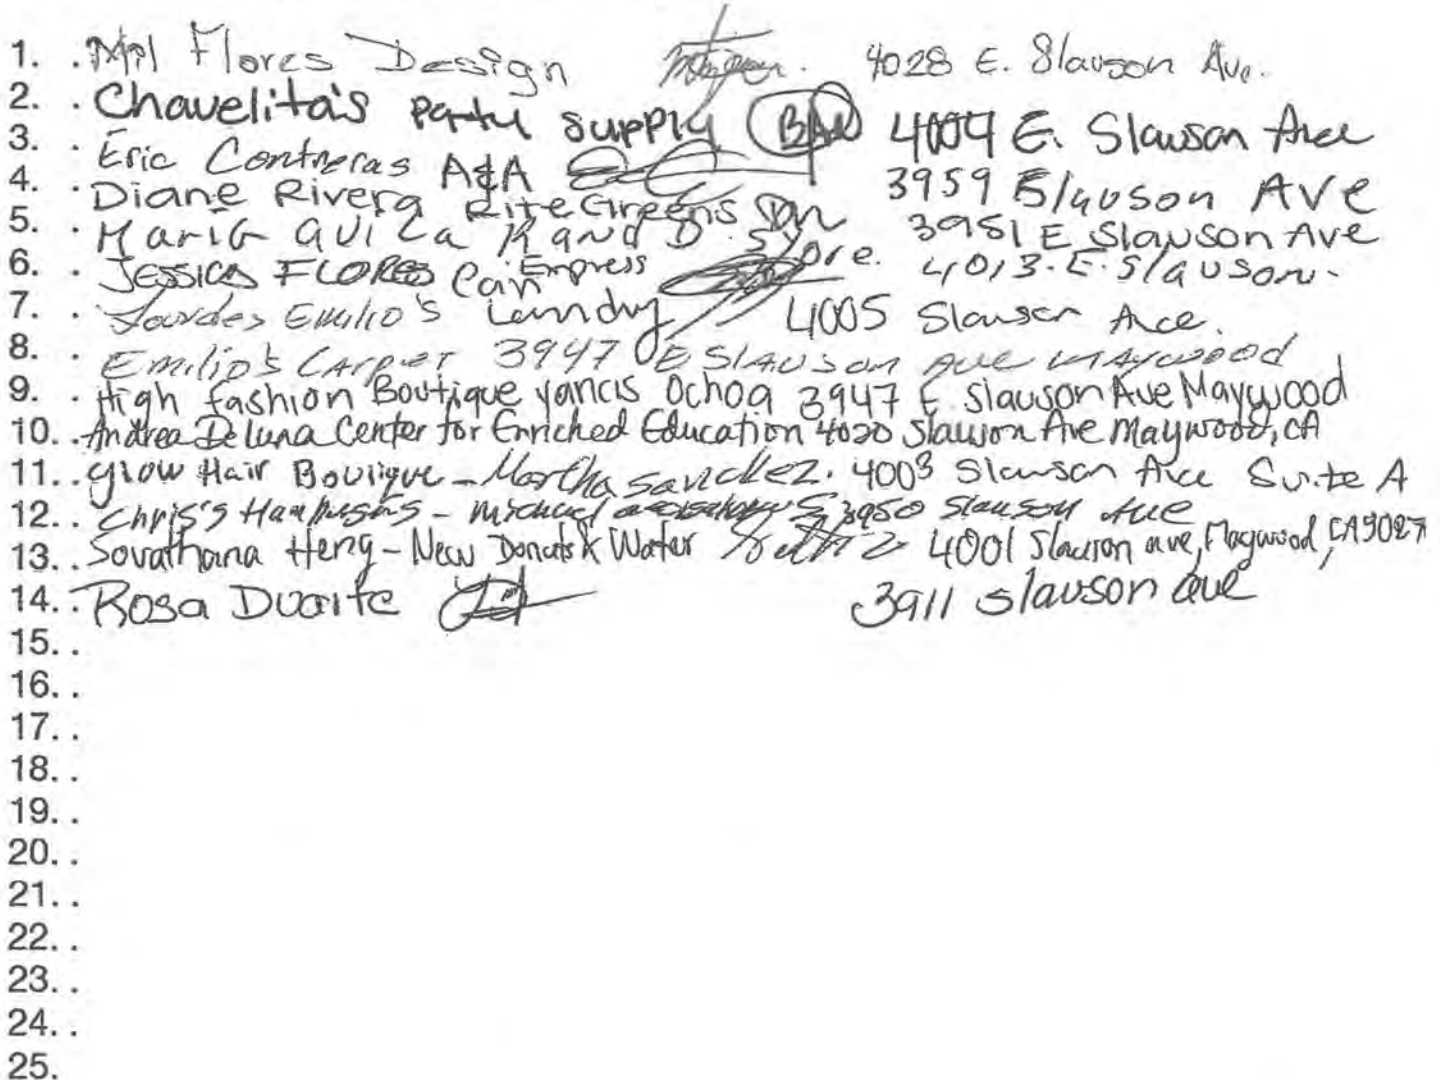 1. . Mil Flores Design 4028 E. Slauson Ave.
2. . Chavelita's Party Supply 4004 E. Slauson Ave
3. . Eric Contreras A&A 3959 E Slauson AVE
4. . Diane Rivera RiteGreens 3951 E Slauson Ave
5. . Maria avila R and D. Store. 4013. E. Slauson.
6. . JESSICA FLORES Coin Express Laundry 4005 Slauson Ave.
7. . Lourdes Emilio's
8. . Emilio's Carpet 3947 E SLAUSON Ave MAYWOOD
9. . High fashion Boutique yancis Ochoa 3947 E. Slauson Ave Maywood
10. . Andrea De Luna Center for Enriched Education 4020 Slauson Ave Maywood, CA
11. . glow Hair Boutique - Martha Sanchez. 4003 Slauson Ave Suite A
12. . Chris's - Michael 3950 Slauson Ave
13. . Sovathana Heng - New Donuts & Water 4001 Slauson ave, Maywood, CA 9027
14. . Rosa Duarte 3911 slauson ave
15. .
16. .
17. .
18. .
19. .
20. .
21. .
22. .
23. .
24. .
25.